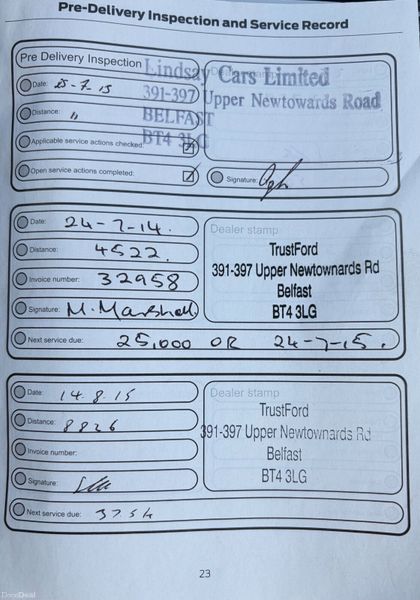 Pre-Delivery Inspection and Service Record
Pre Delivery Inspection
Lindsay Cars Limited
391-397 Upper Newtowards Road
BELFAST
BT4 3LG
Date: 25-7-13
Distance: "
Applicable service actions checked:
Open service actions completed:
Signature:
Date: 24-7-14.
Distance: 4522.
Invoice number: 32958
Signature: M. Marshall
Next service due: 25,000 OR 24-7-15.
Dealer stamp
TrustFord
391-397 Upper Newtownards Rd
Belfast
BT4 3LG
Date: 14.8.15
Distance: 8826
Invoice number:
Signature:
Next service due:
Dealer stamp
TrustFord
391-397 Upper Newtownards Rd
Belfast
BT4 3LG
23
DoneDeal